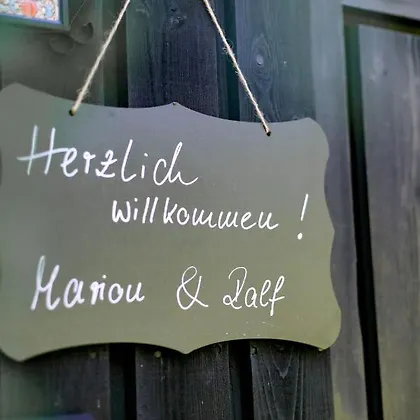 Herzlich
willkommen!
Marion & Ralf